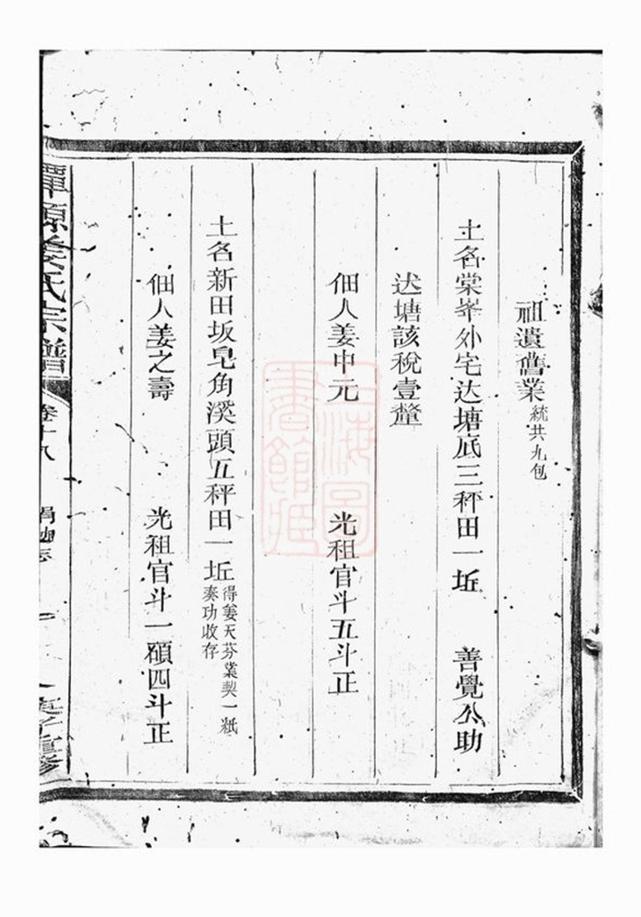 祖遺舊業統共九包
土名棠峯外宅迏塘底三秤田一坵　善覺公助
迏塘該稅壹釐
佃人姜中元　光租官斗五斗正
土名新田坂皂角溪頭五秤田一坵得姜天芬業契一紙奏功收存
佃人姜之壽　光租官斗一碩四斗正
源姜氏宗譜
卷十八
上海圖書館藏